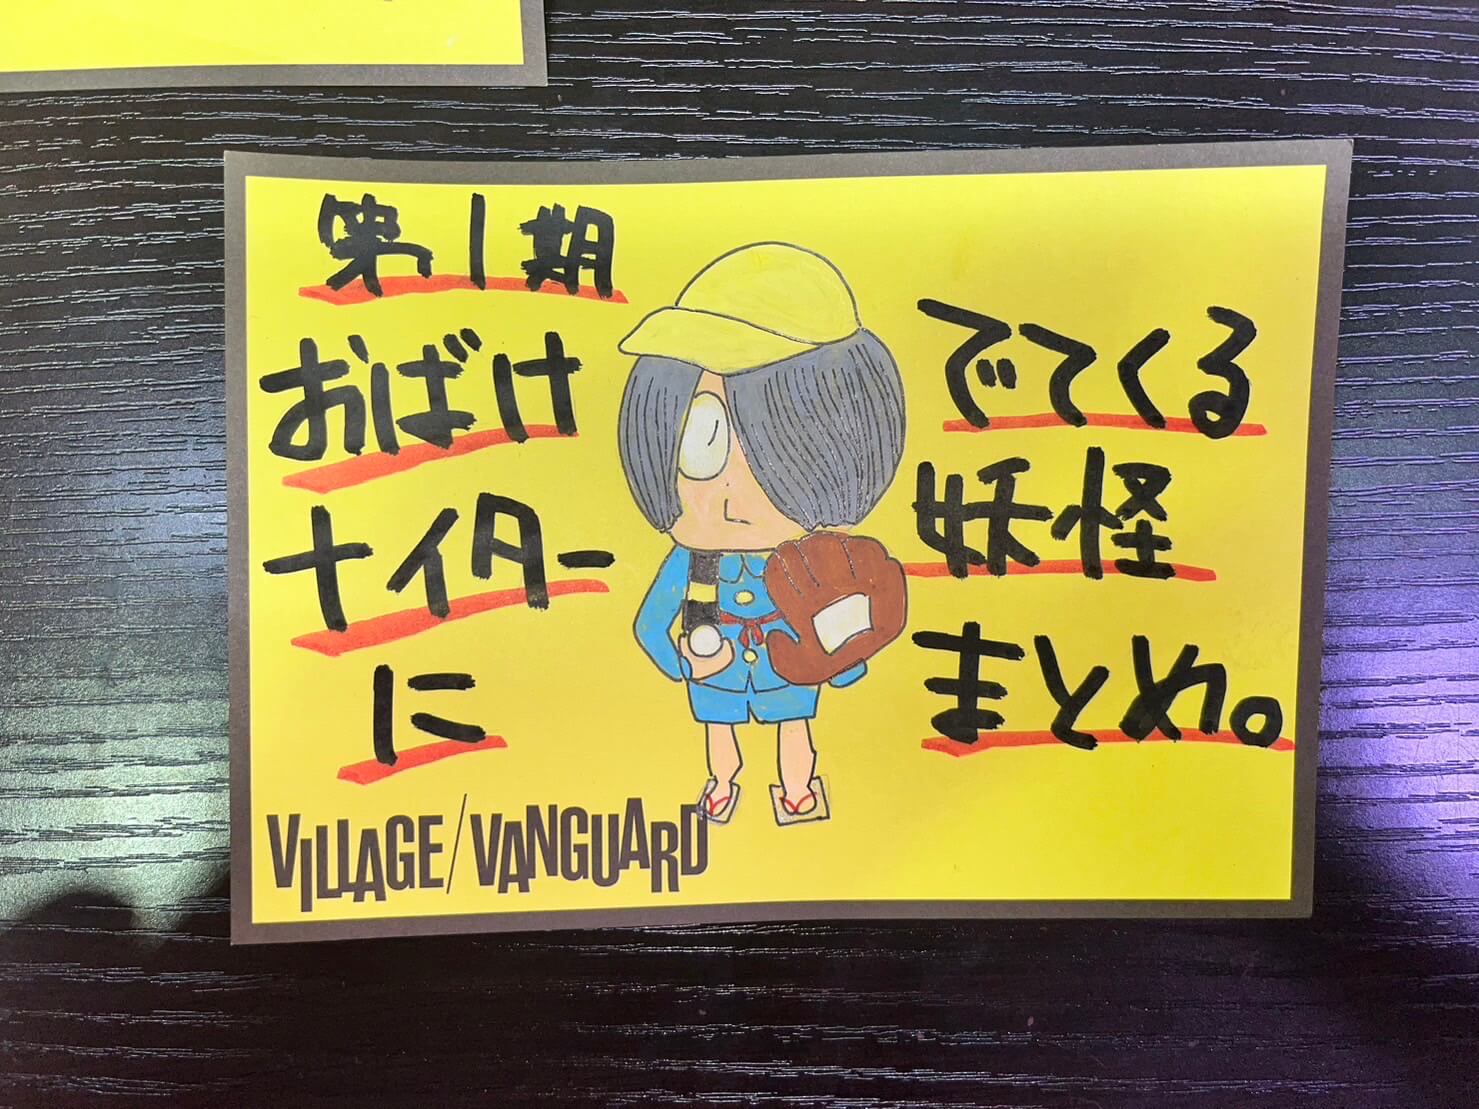 第1期
おばけ
ナイター
に
でてくる
妖怪
まとめ。
VILLAGE/VANGUARD